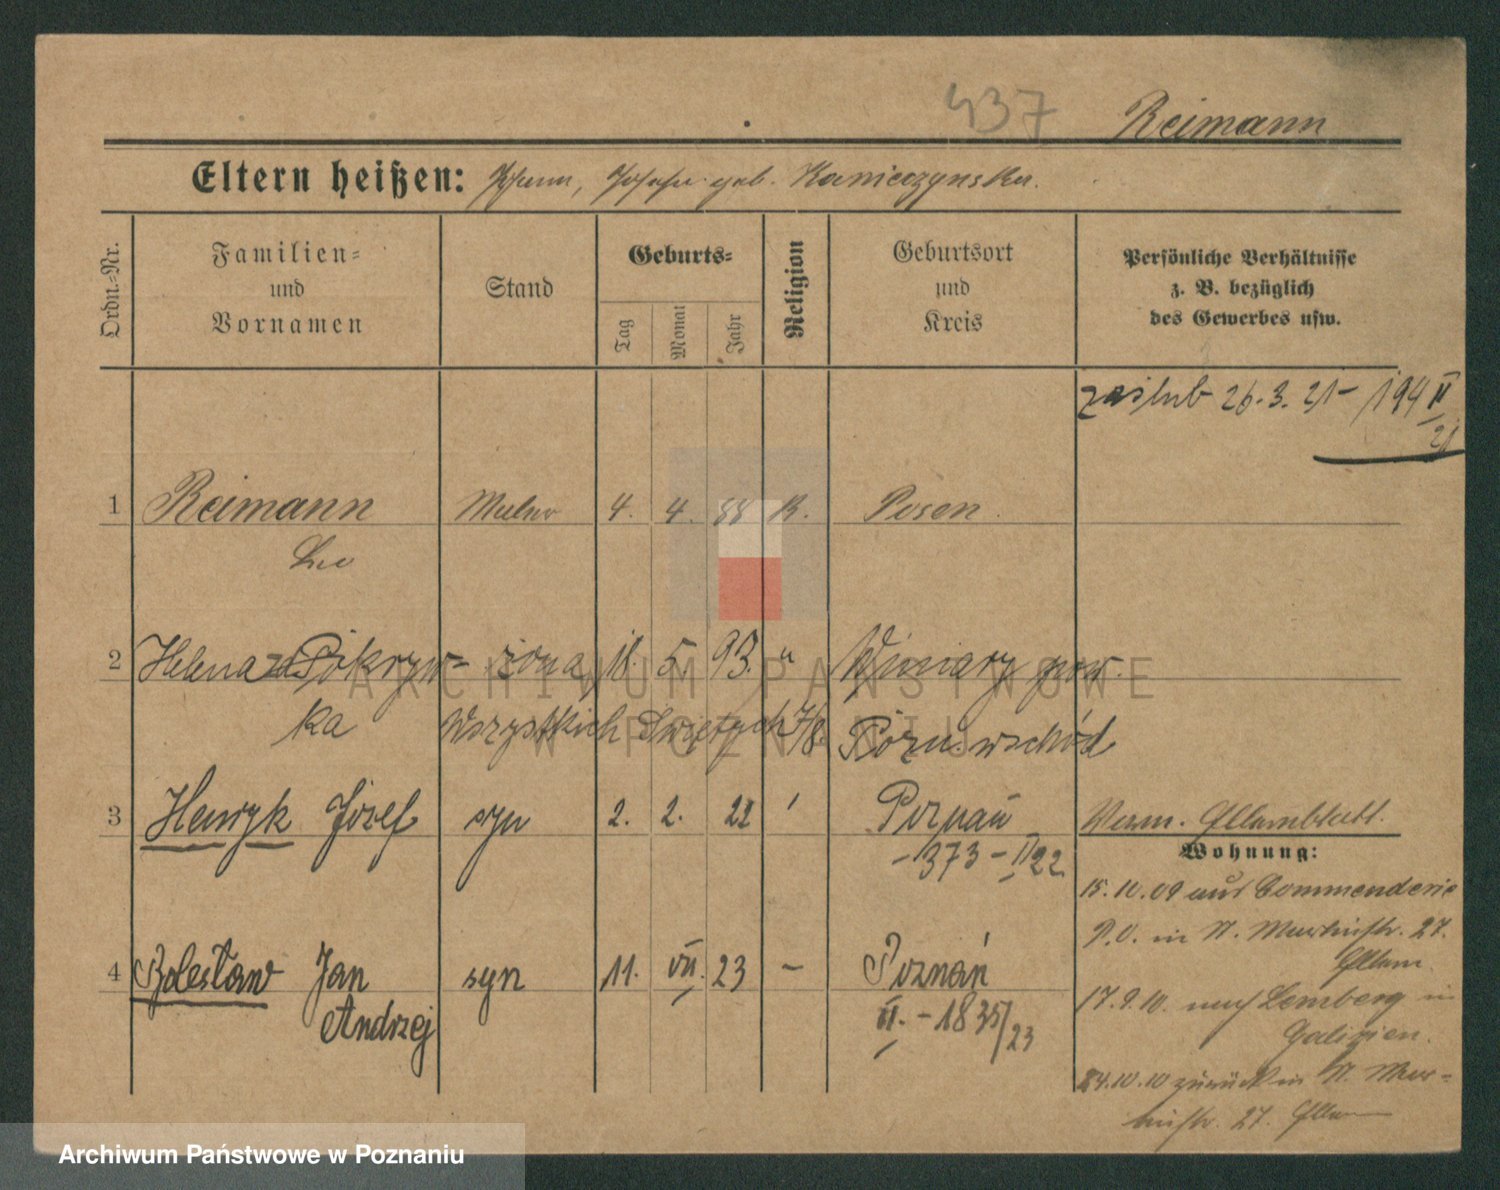 437 Reimann
Eltern heißen: Johann, Josefa geb. Kanieczynska.
Ordn.=Nr.
Familien=
und
Vornamen
Stand
Geburts=
Tag
Monat
Jahr
Religion
Geburtsort
und
Kreis
Persönliche Verhältnisse
z. B. bezüglich
des Gewerbes usw.
zaślub 26.3.21 - 194 II
21
1 Reimann Maler 4. 4. 88 K. Posen
Leo
2 Helena Pokryw- żona 18. 5. 93. " Winiary pow.
ka Wszystkich Świętych 7/8 Pozn. wschód
3 Henryk Józef syn 2. 2. 22 Poznań
- 373 - II 22
Verm. Elternblatt.
Wohnung:
15.10.09 aus Commenderie
P.O. in St. Martinstr. 27.
Eltern.
4 Bolesław Jan syn 11. VII. 23 - Poznań
Andrzej
II. - 1835/23
17.9.10. nach Lemberg in
Galizien.
24.10.10 zurück in St. Mar-
tinstr. 27. Eltern
ARCHIWUM PAŃSTWOWE
W POZNANIU
Archiwum Państwowe w Poznaniu